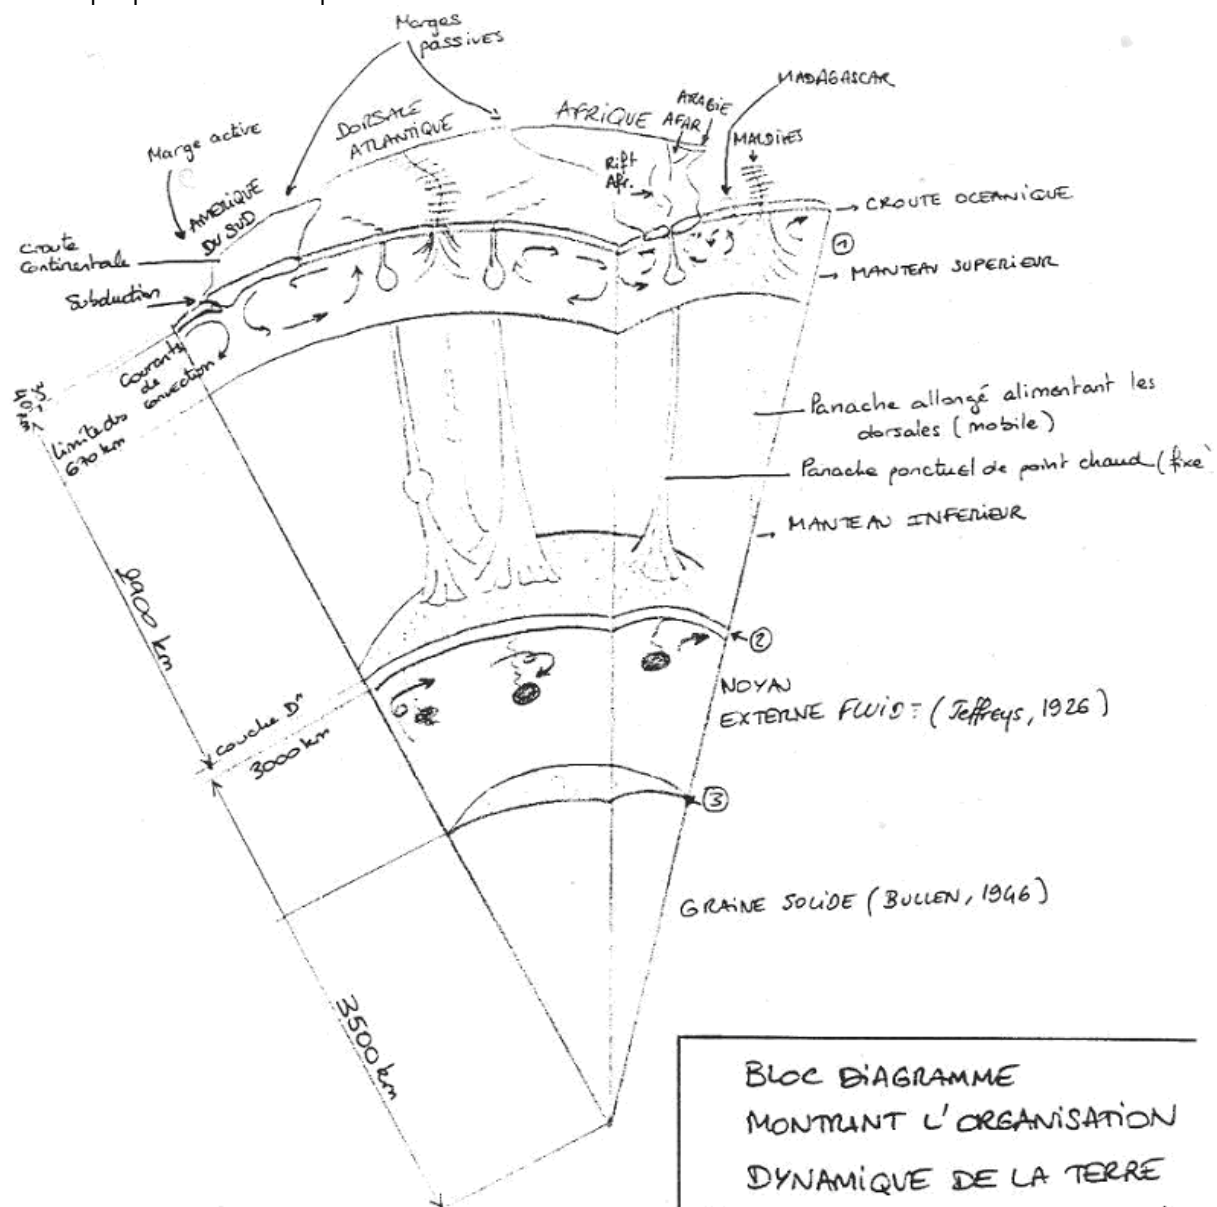 Marges
passives
MADAGASCAR
ARABIE
AFRIQUE
AFAR
DORSALE
ATLANTIQUE
MALDIVES
Marge active
Rift
Afr.
AMERIQUE
DU SUD
CROUTE OCEANIQUE
croute
continentale
①
MANTEAU SUPERIEUR
Subduction
Courants
de
convection
limite des
670 km
Panache allongé alimentant les
dorsales (mobile)
Panache ponctuel de point chaud (fixe
MANTEAU INFERIEUR
2900 km
②
NOYAU
EXTERNE FLUIDE (Jeffreys, 1926)
couche D"
3000 km
③
GRAINE SOLIDE (BULLEN, 1946)
3500 km
BLOC DIAGRAMME
MONTRANT L'ORGANISATION
DYNAMIQUE DE LA TERRE